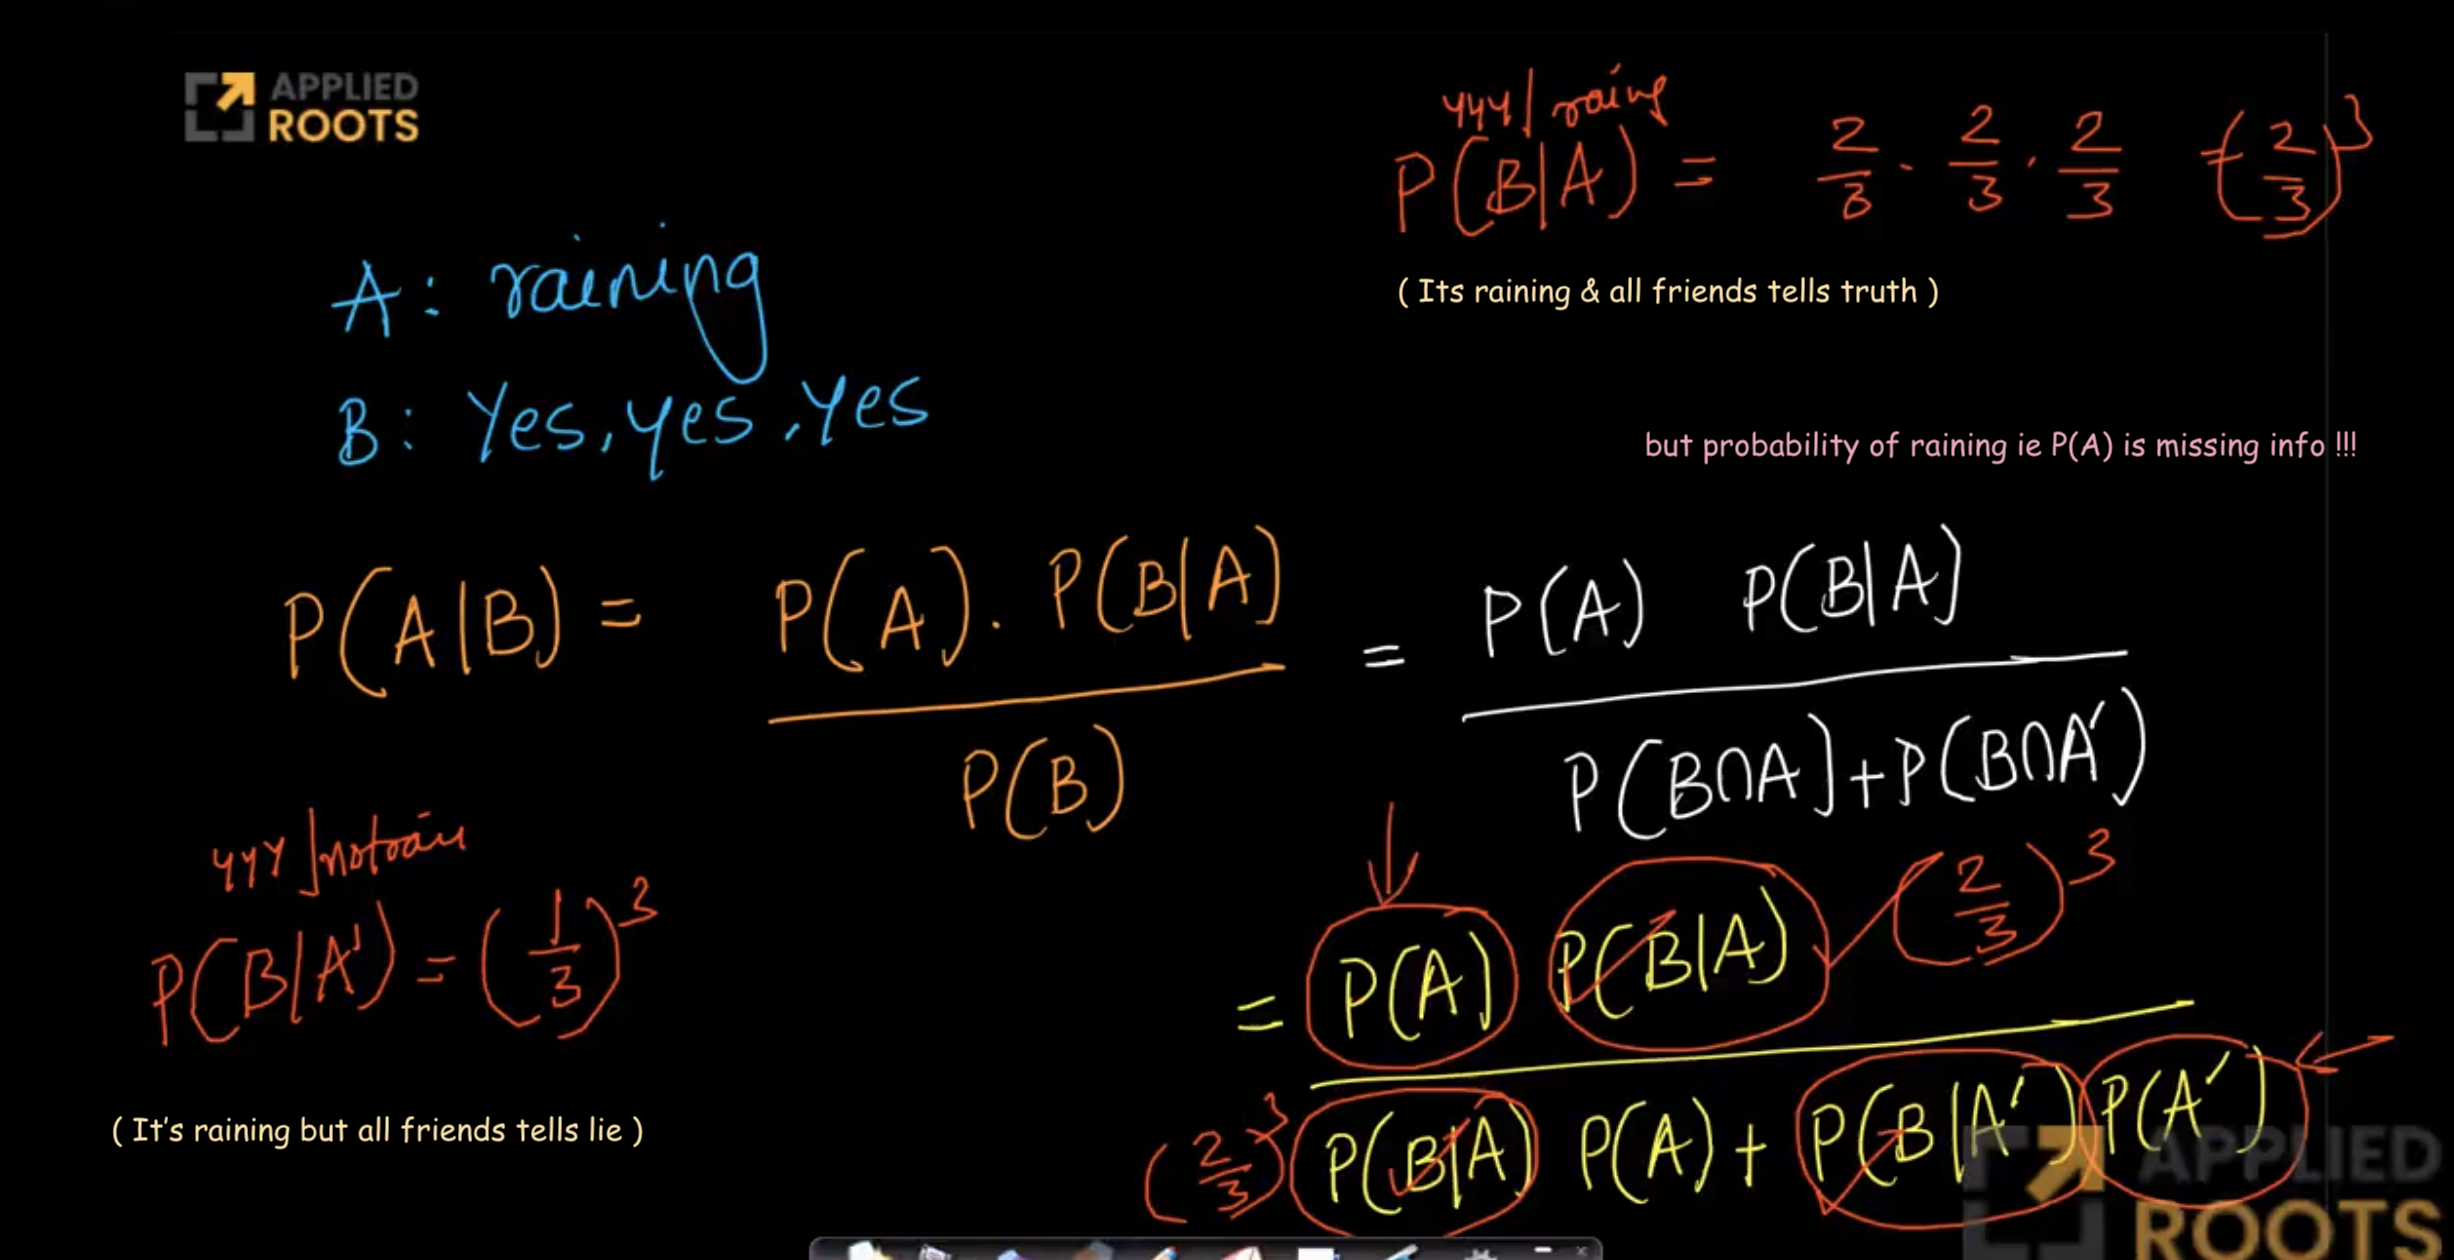 APPLIED
ROOTS
yyy | raing
P(B|A) = 2/3 · 2/3 · 2/3 = (2/3)^3
( Its raining & all friends tells truth )
A: raining
B: Yes, yes, Yes
but probability of raining ie P(A) is missing info !!!
P(A|B) = P(A) · P(B|A) / P(B) = P(A) P(B|A) / P(B∩A) + P(B∩A')
yyy | notrain
P(B|A') = (1/3)^3
( It's raining but all friends tells lie )
= P(A) P(B|A) (2/3)^3
(2/3)^3 P(B|A) P(A) + P(B|A') P(A')
APPLIED
ROOTS